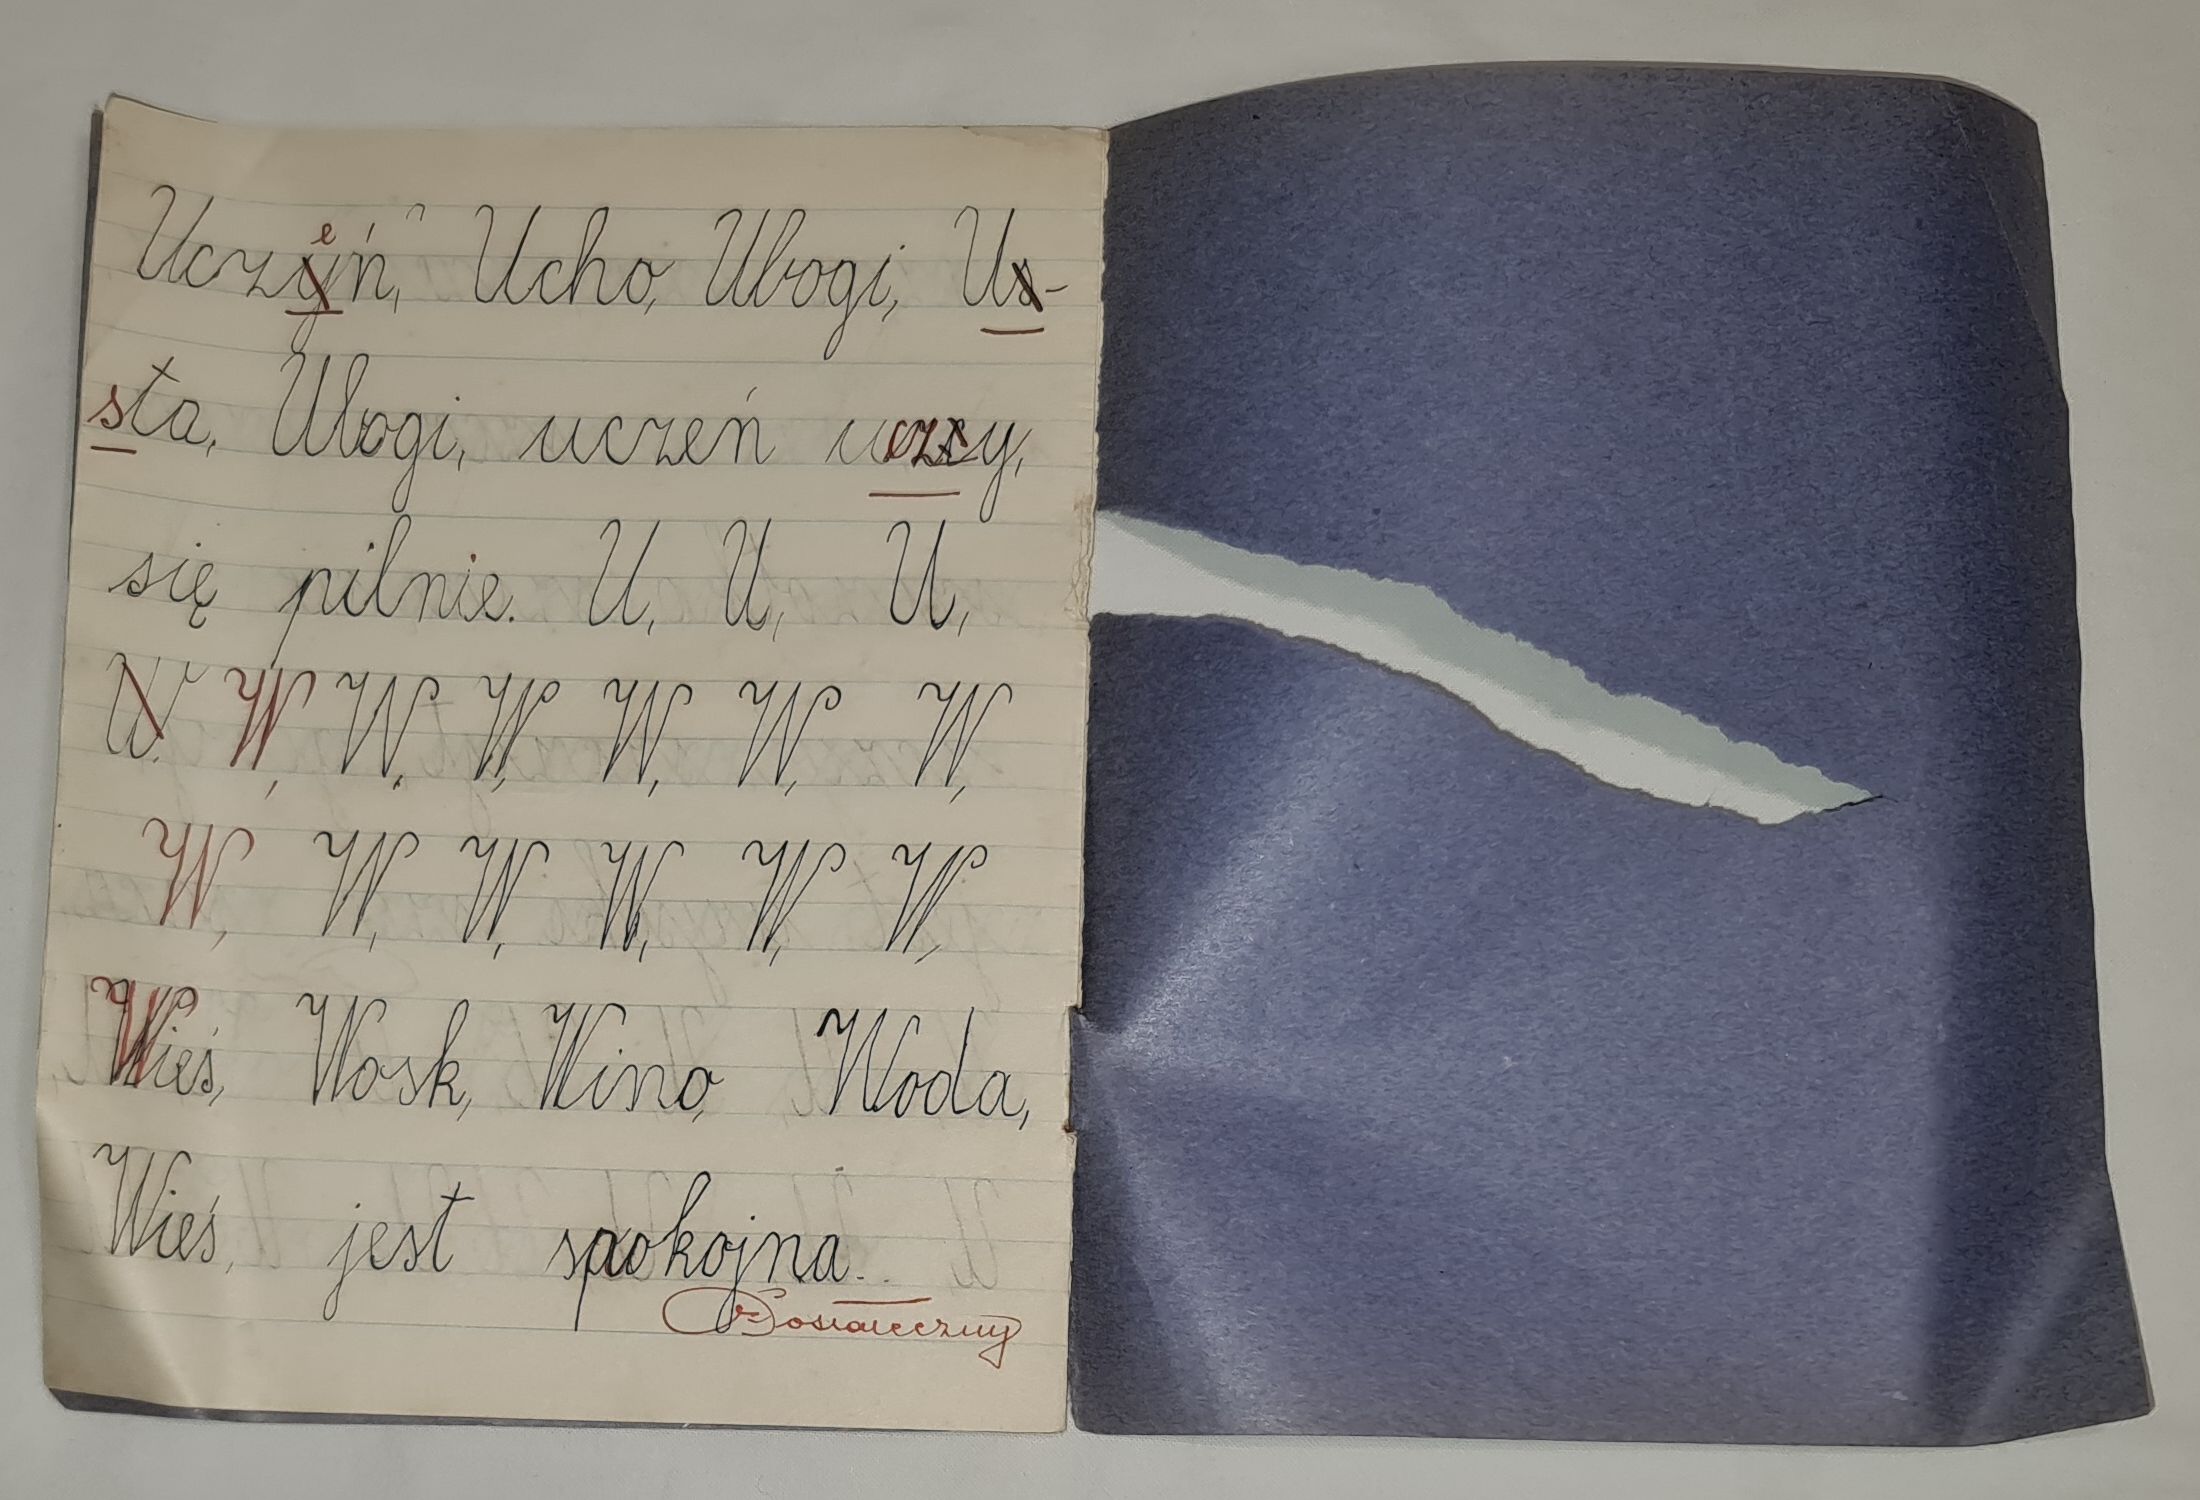 Uczyń, Ucho, Ubogi, Us-
sta, Ubogi, uczeń uczy,
się pilnie. U, U, U,
W, W, W, W, W, W, W,
W, W, W, W, W, W,
Wieś, Wosk, Wino, Woda,
Wieś, jest spokojna.